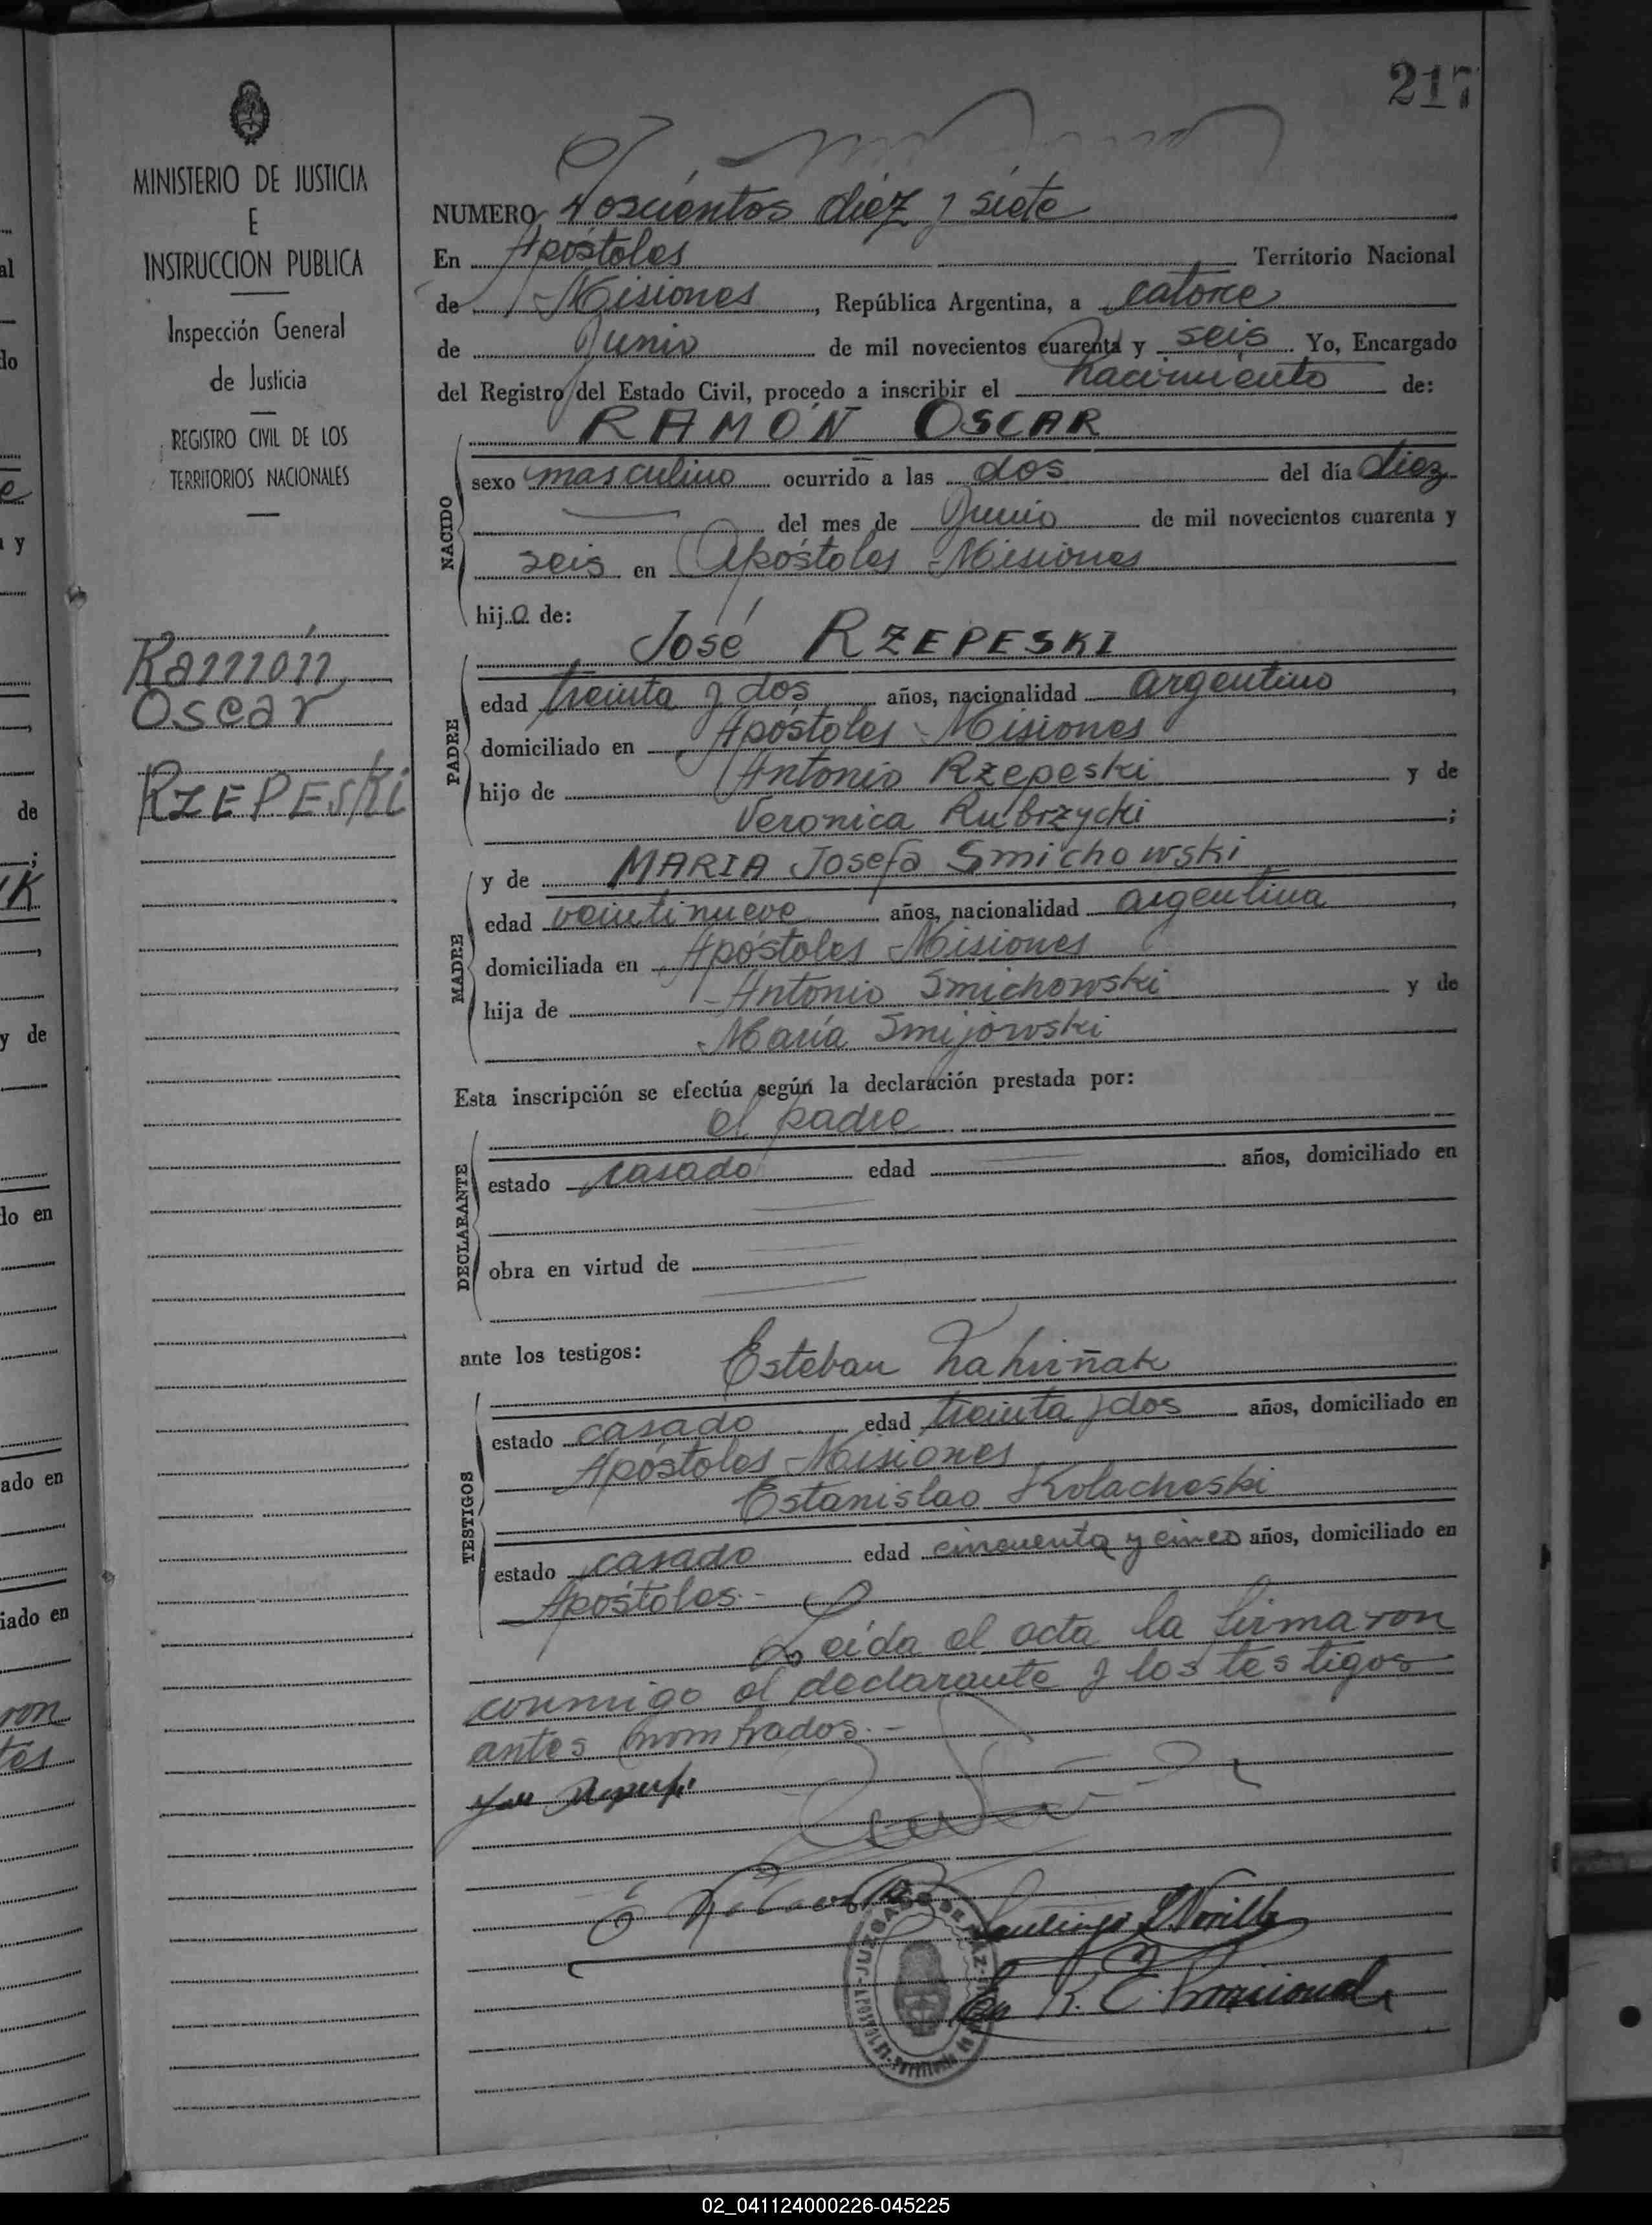 217
MINISTERIO DE JUSTICIA
E
INSTRUCCION PUBLICA
Inspección General
de Justicia
REGISTRO CIVIL DE LOS
TERRITORIOS NACIONALES
Ramón
Oscar
RZEPESKi
NUMERO Doscientos diez y siete
En Apóstoles Territorio Nacional
de Misiones, República Argentina, a catorce
de Junio de mil novecientos cuarenta y seis Yo, Encargado
del Registro del Estado Civil, procedo a inscribir el nacimiento de:
NACIDO
RAMÓN OSCAR
sexo masculino ocurrido a las dos del día diez
del mes de Junio de mil novecientos cuarenta y
seis en Apóstoles Misiones
hijo de:
PADRE
José RZEPESKI
edad treinta y dos años, nacionalidad argentino
domiciliado en Apóstoles Misiones
hijo de Antonio Rzepeski y de
Veronica Rubrzycki;
MADRE
y de MARIA Josefa Smichowski
edad veintinueve años, nacionalidad argentina
domiciliada en Apóstoles Misiones
hija de Antonio Smichowski y de
María Smijowski
Esta inscripción se efectúa según la declaración prestada por:
DECLARANTE
el padre
estado casado edad años, domiciliado en
obra en virtud de
ante los testigos: Esteban
TESTIGOS
estado casado edad treinta y dos años, domiciliado en
Apóstoles Misiones
Estanislao Kolacheski
estado casado edad cincuenta y cinco años, domiciliado en
Apóstoles.-
Leida el acta la firmaron
conmigo el declarante y los testigos
antes nombrados.-
JUZGADO DE PAZ
APOSTOLES
02_041124000226-045225